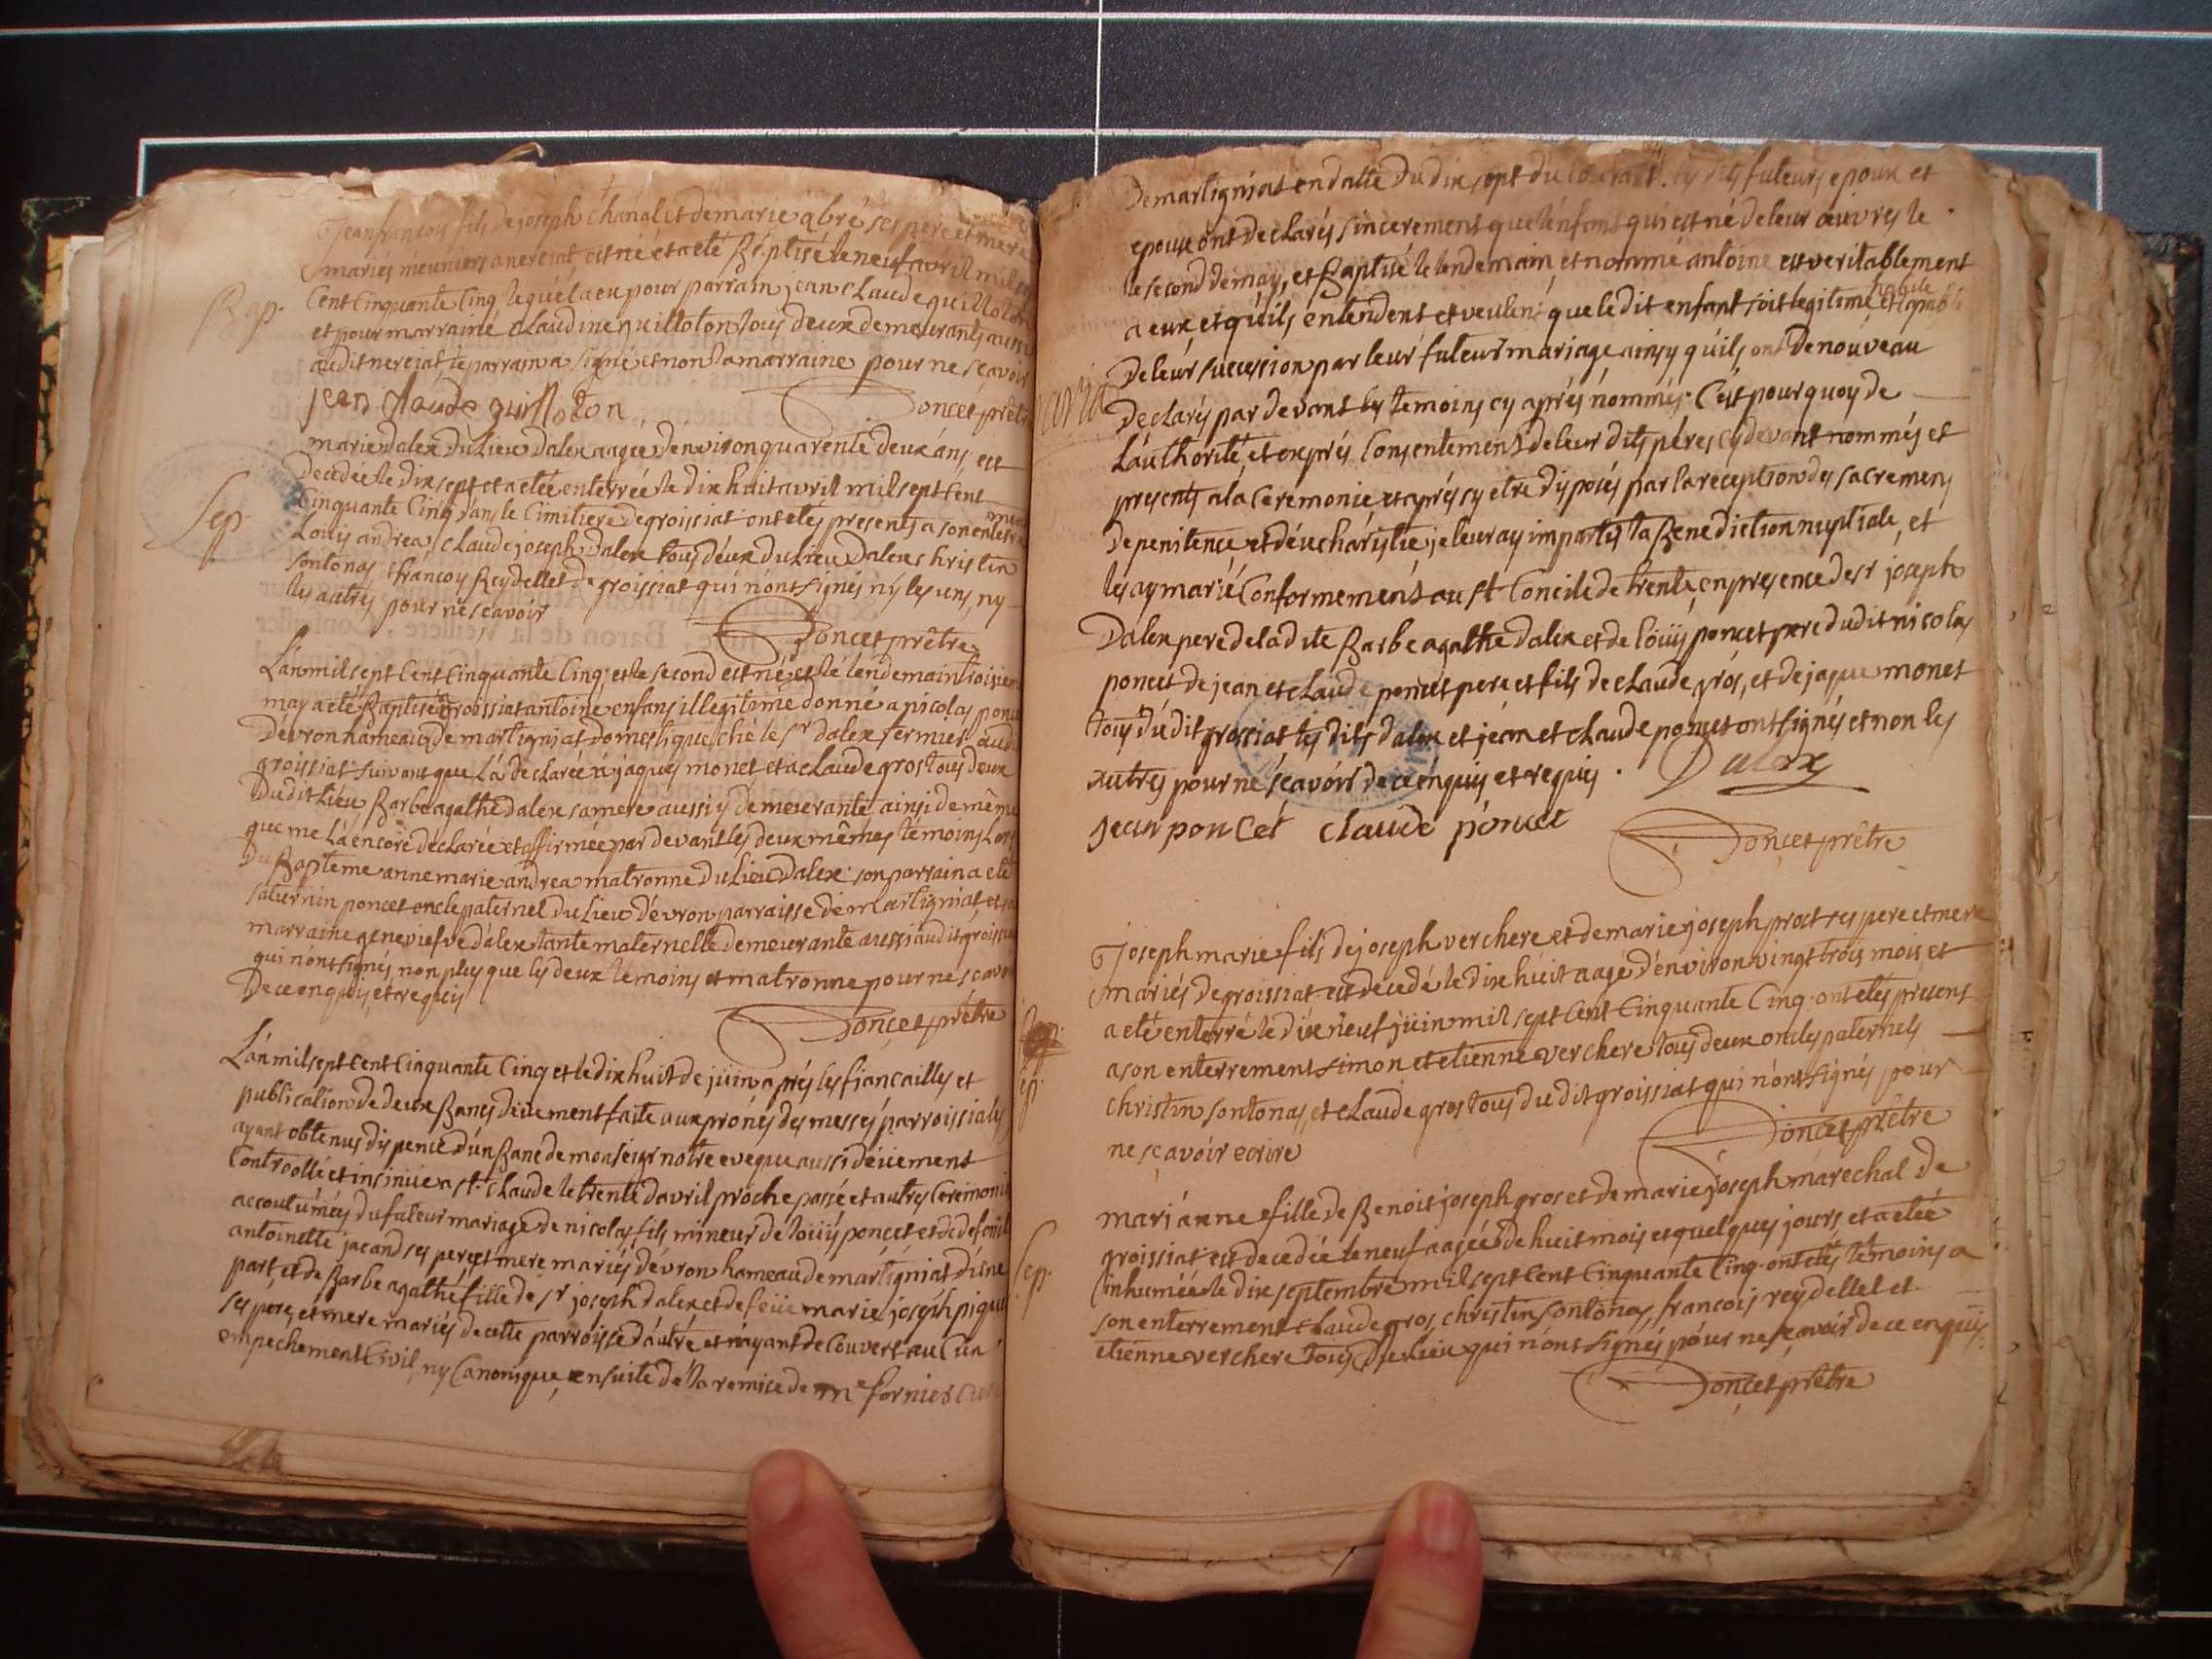 Jeanfrançois fils de joseph Chanal et de marie abré ses pere et mere
mariés meuniers a nerciat, est né et a eté Baptisé le neuf avril mil sept
Bap. Cent Cinquante Cinq lequel a eu pour parrain jean claude quilloton
et pour marraine claudine quilloton tous deux demeurants aussi
audit nerciat, le parrain a signé et non la marraine pour ne sçavoir
jean claude quilloton Poncet prêtre
marie dalex du Lieu dalex aagée d'environ quarente deux ans, est
Decedée le dix sept et a etée enterrée le dix huit avril mil sept Cent
Sep. Cinquante Cinq dans le Cimitiere de groissiat ont etés presents a son enterrement
Louis andrea, claude joseph Dalex tous deux du Lieu Dalex christin
sontonas, francois Reydellet de groissiat qui n'ont signés ny les uns, ny
les autres pour ne scavoir
Poncet prêtre
L'an mil sept Cent Cinquante Cinq, et le second est né, et le lendemain troisieme
may a eté Baptisé a groissiat antoine enfans illegitime donné a nicolas poncet
D'évron hameau de martigniat domestique ché le sr dalex fermier audit
groissiat suivant que L'a declarée a jaques monet et a claude gros tous deux
Dudit Lieu, Barbe agathe dalex sa mere aussi y demeurante ainsi de même
que me L'a encore declarée et affirmée par devant les deux mêmes témoins Lors
Du Baptême anne marie andrea matronne du Lieu Dalex son parrain a eté
saturnin poncet oncle paternel du Lieu D'évron parroisse de martigniat et sa
marraine genevieve d'alex tante maternelle demeurante aussi audit groissiat
qui n'ont signés, non plus que les deux témoins et matronne pour ne sçavoir
De ce enquis, et requis
Poncet prêtre
L'an mil sept Cent Cinquante Cinq et le dix huit de juin après les fiançailles et
publication de deux Bancs düement faite aux prônes des messes parroissiales
ayant obtenus dispence d'un Banc de monseigr notre eveque aussi düement
Controollé et insinüé a st. Claude le trente d'avril proche passé et autres Ceremonies
accoutumées du futeur mariage de nicolas fils mineur de loüis poncet et de defunte
antoinette jacand ses pere et mere mariés d'évron hameau de martigniat d'une
part, et de Barbe agathe fille de sr joseph dalex et de feüe marie joseph pique
ses pere, et mere mariés de cette parroisse d'autre et n'ayant decouvert aucun
empechement Civil, ny Canonique, ensuite de la remise de me fornier curé
De martigniat en datte du dix sept du courant. les dits futeurs epoux et
epouse ont declarés sincerement que l'enfant qui est né de leur œuvres le
le second de may, et Baptisé le lendemain et nommé antoine est veritablement
a eux, et qu'ils entendent et veulent que le dit enfant soit legitime habile et capable
De leur succession par leur futeur mariage ainsy qu'ils ont de nouveau
Declarés par devant les temoins cy après nommés. C'est pourquoy de
L'authorité, et exprés Consentement de leur dits péres cy devant nommés et
presents a la Ceremonie et aprés cy etre disposés par la reception des sacremens
De penitence et d'eucharistie je leur ay impartis la Benediction nuptiale, et
les ay marié Conformement au st Concile de trente, en presence de sr joseph
Dalex pere de la dite Barbe agathe dalex et de loüis poncet pere dudit nicolas
poncet de jean et claude poncet pere et fils de claude gros, et de jaque monet
tous du dit groissiat les dits dalex et jean et claude poncet ont signés et non les
autres pour ne sçavoir de ce enquis et requis. Dalex
jean poncet claude poncet
Poncet prêtre
Joseph marie fils de joseph verchere et de marie joseph prost ses pere et mere
mariés de groissiat est decedé le dix huit aagé d'environ vingt trois mois, et
a eté enterré le dix neuf juin mil sept Cent Cinquante Cinq. ont etés presens
a son enterrement simon et etienne verchere tous deux oncles paternels
christin sontonas, et claude gros tous du dit groissiat qui n'ont signés pour
ne sçavoir ecrire
Poncet prêtre
marianne fille de Benoit joseph gros et de marie joseph marechal de
groissiat est decedée le neuf aagée de huit mois et quelques jours, et a etée
Sep. inhumée le dix septembre mil sept Cent Cinquante Cinq. ont etés temoins a
son enterrement claude gros, christin sontonas, francois reydellet et
etienne verchere tous du Lieu qui n'ont signés pour ne sçavoir de ce enquis.
Poncet prêtre